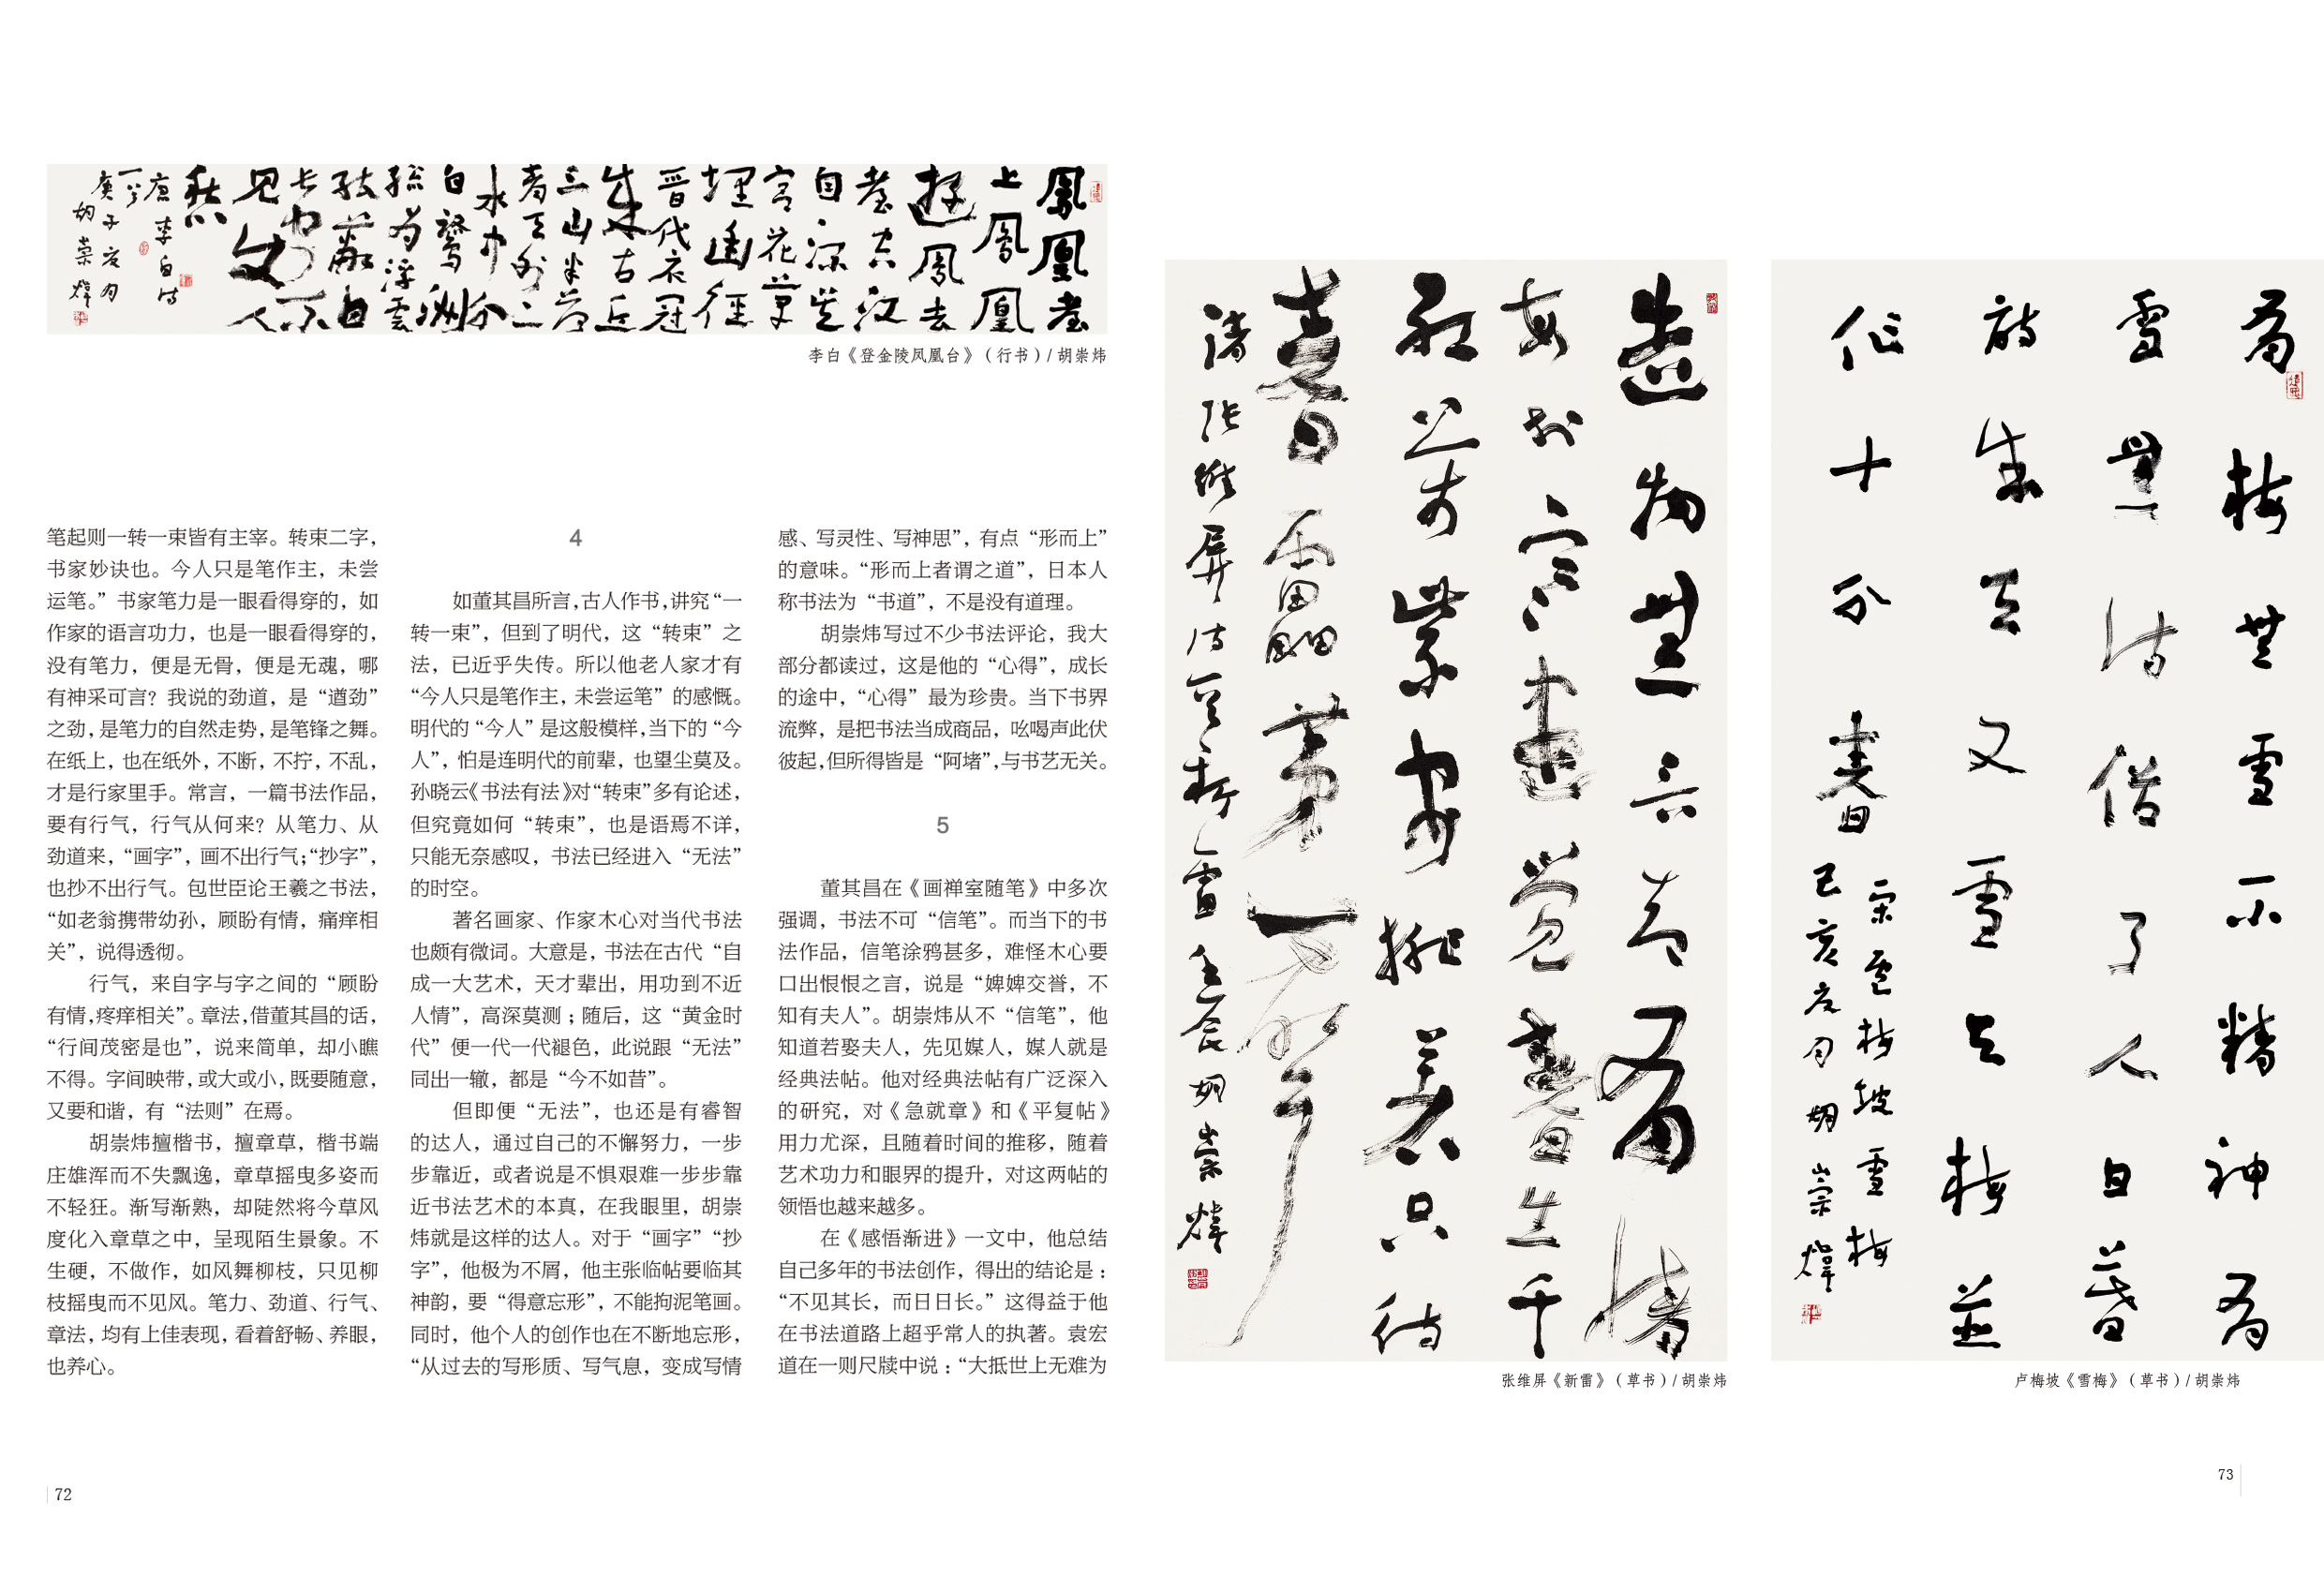 鳳凰臺
上鳳凰
遊鳳去
臺空江
自流吳
宮花草
埋幽徑
晉代衣冠
成古丘
三山半落
青天外二
水中分
白鷺洲
總為浮雲
能蔽日
長安不
見使人
愁
唐李白詩
一首
庚子夏月
胡崇煒
李白《登金陵凤凰台》（行书）/ 胡崇炜
笔起则一转一束皆有主宰。转束二字，
书家妙诀也。今人只是笔作主，未尝
运笔。”书家笔力是一眼看得穿的，如
作家的语言功力，也是一眼看得穿的，
没有笔力，便是无骨，便是无魂，哪
有神采可言？我说的劲道，是“遒劲”
之劲，是笔力的自然走势，是笔锋之舞。
在纸上，也在纸外，不断，不拧，不乱，
才是行家里手。常言，一篇书法作品，
要有行气，行气从何来？从笔力、从
劲道来，“画字”，画不出行气；“抄字”，
也抄不出行气。包世臣论王羲之书法，
“如老翁携带幼孙，顾盼有情，痛痒相
关”，说得透彻。
行气，来自字与字之间的“顾盼
有情，疼痒相关”。章法，借董其昌的话，
“行间茂密是也”，说来简单，却小瞧
不得。字间映带，或大或小，既要随意，
又要和谐，有“法则”在焉。
胡崇炜擅楷书，擅章草，楷书端
庄雄浑而不失飘逸，章草摇曳多姿而
不轻狂。渐写渐熟，却陡然将今草风
度化入章草之中，呈现陌生景象。不
生硬，不做作，如风舞柳枝，只见柳
枝摇曳而不见风。笔力、劲道、行气、
章法，均有上佳表现，看着舒畅、养眼，
也养心。
4
如董其昌所言，古人作书，讲究“一
转一束”，但到了明代，这“转束”之
法，已近乎失传。所以他老人家才有
“今人只是笔作主，未尝运笔”的感慨。
明代的“今人”是这般模样，当下的“今
人”，怕是连明代的前辈，也望尘莫及。
孙晓云《书法有法》对“转束”多有论述，
但究竟如何“转束”，也是语焉不详，
只能无奈感叹，书法已经进入“无法”
的时空。
著名画家、作家木心对当代书法
也颇有微词。大意是，书法在古代“自
成一大艺术，天才辈出，用功到不近
人情”，高深莫测；随后，这“黄金时
代”便一代一代褪色，此说跟“无法”
同出一辙，都是“今不如昔”。
但即便“无法”，也还是有睿智
的达人，通过自己的不懈努力，一步
步靠近，或者说是不惧艰难一步步靠
近书法艺术的本真，在我眼里，胡崇
炜就是这样的达人。对于“画字”“抄
字”，他极为不屑，他主张临帖要临其
神韵，要“得意忘形”，不能拘泥笔画。
同时，他个人的创作也在不断地忘形，
“从过去的写形质、写气息，变成写情
感、写灵性、写神思”，有点“形而上”
的意味。“形而上者谓之道”，日本人
称书法为“书道”，不是没有道理。
胡崇炜写过不少书法评论，我大
部分都读过，这是他的“心得”，成长
的途中，“心得”最为珍贵。当下书界
流弊，是把书法当成商品，吆喝声此伏
彼起，但所得皆是“阿堵”，与书艺无关。
5
董其昌在《画禅室随笔》中多次
强调，书法不可“信笔”。而当下的书
法作品，信笔涂鸦甚多，难怪木心要
口出恨恨之言，说是“婢婢交誉，不
知有夫人”。胡崇炜从不“信笔”，他
知道若娶夫人，先见媒人，媒人就是
经典法帖。他对经典法帖有广泛深入
的研究，对《急就章》和《平复帖》
用力尤深，且随着时间的推移，随着
艺术功力和眼界的提升，对这两帖的
领悟也越来越多。
在《感悟渐进》一文中，他总结
自己多年的书法创作，得出的结论是：
“不见其长，而日日长。”这得益于他
在书法道路上超乎常人的执著。袁宏
道在一则尺牍中说：“大抵世上无难为
72
造物無言却有情
每於寒盡覺春生千
紅萬紫安排著只待
春雷第一聲
清張維屏詩一首新雷胡崇煒
张维屏《新雷》（草书）/ 胡崇炜
有梅無雪不精神有
雪無詩俗了人日暮
詩成天又雪與梅並
作十分春
宋盧梅坡雪梅
己亥夏月胡崇煒
卢梅坡《雪梅》（草书）/ 胡崇炜
73